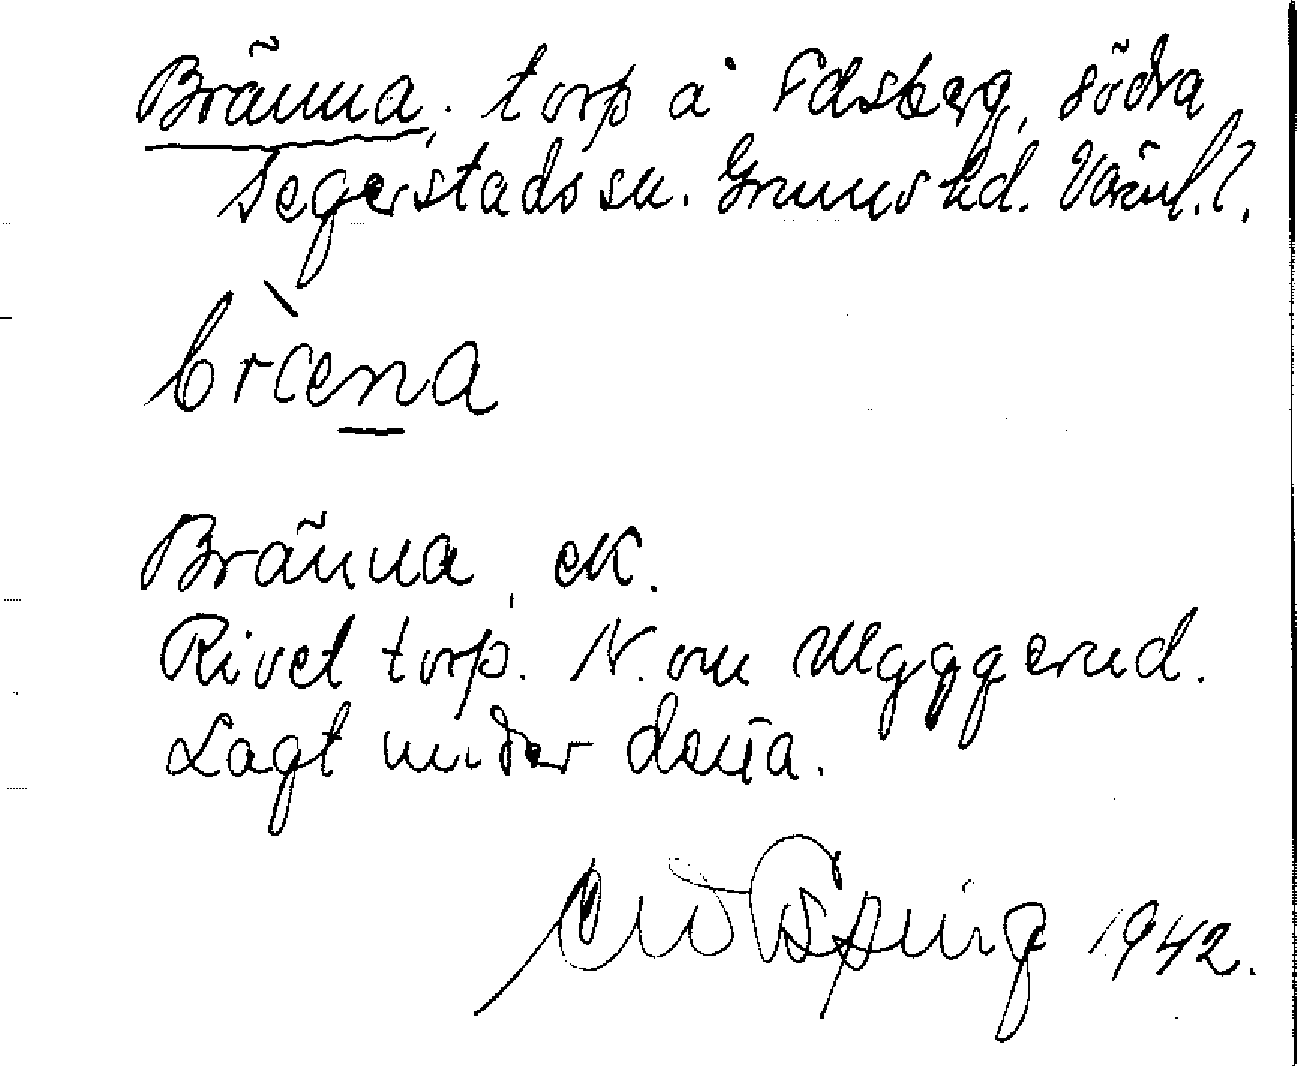 Bränna, torp å Edsberg, södra
Segerstads sn. Grums hd. Värml. l.
bræ̀na
Bränna, ek.
Rivet torp. N. om Myggerud.
Lagt under detta.
1942.